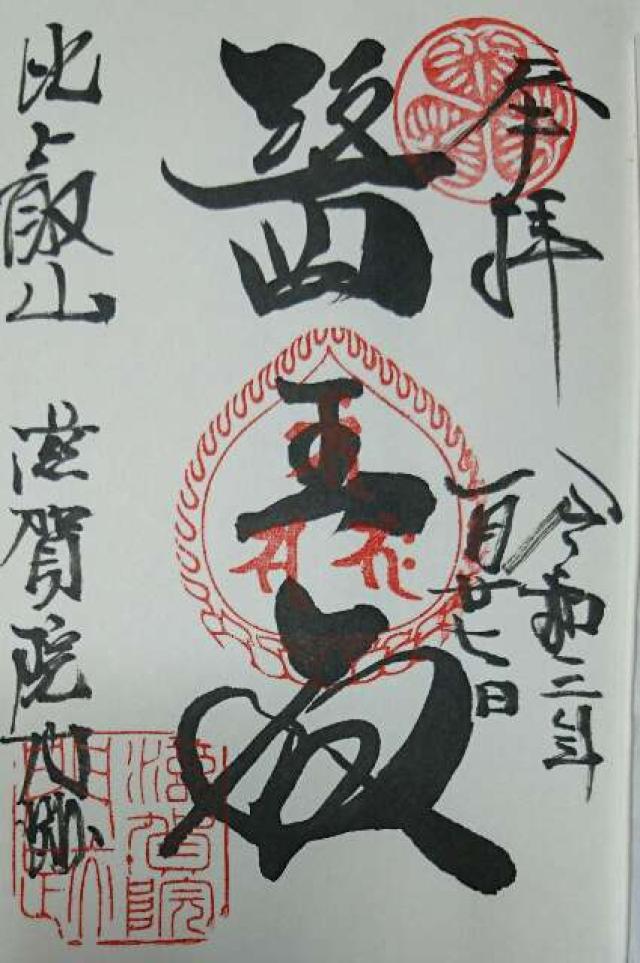 奉拝
令和二年
一月廿七日
醫王殿
比叡山 滋賀院門跡
滋賀院
門跡